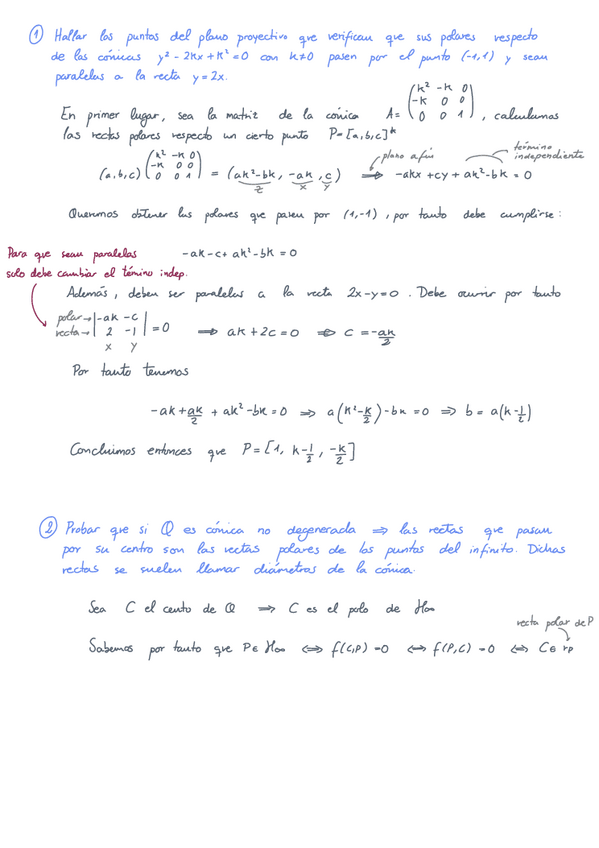 ① Hallar los puntos del plano proyectivo que verifican que sus polares respecto
de las cónicas y² - 2kx + k² = 0 con k≠0 pasen por el punto (-1,1) y sean
paralelas a la recta y = 2x.
En primer lugar, sea la matriz de la cónica A = (k² -k 0 / -k 0 0 / 0 0 1), calculamos
las rectas polares respecto un cierto punto P = [a,b,c]*
plano afín
término independiente
(a,b,c) (k² -k 0 / -k 0 0 / 0 0 1) = (ak²-bk, -ak, c) ⟹ -akx + cy + ak² - bk = 0
z x y
Queremos obtener las polares que pasen por (1,-1), por tanto debe cumplirse:
Para que sean paralelas
solo debe cambiar el témino indep.
-ak - c + ak² - bk = 0
Además, deben ser paralelas a la recta 2x - y = 0. Debe ocurrir por tanto
polar → |-ak -c|
recta → |2 -1| = 0 ⟹ ak + 2c = 0 ⟹ c = -ak/2
x y
Por tanto tenemos
-ak + ak/2 + ak² - bk = 0 ⟹ a(k² - k/2) - bk = 0 ⟹ b = a(k - 1/2)
Concluimos entonces que P = [1, k - 1/2, -k/2]
② Probar que si Q es cónica no degenerada ⟹ las rectas que pasan
por su centro son las rectas polares de los puntos del infinito. Dichas
rectas se suelen llamar diámetros de la cónica.
Sea C el cento de Q ⟹ C es el polo de H∞
recta polar de P
Sabemos por tanto que P ∈ H∞ ⟺ f(C,P) = 0 ⟺ f(P,C) = 0 ⟺ C ∈ rp